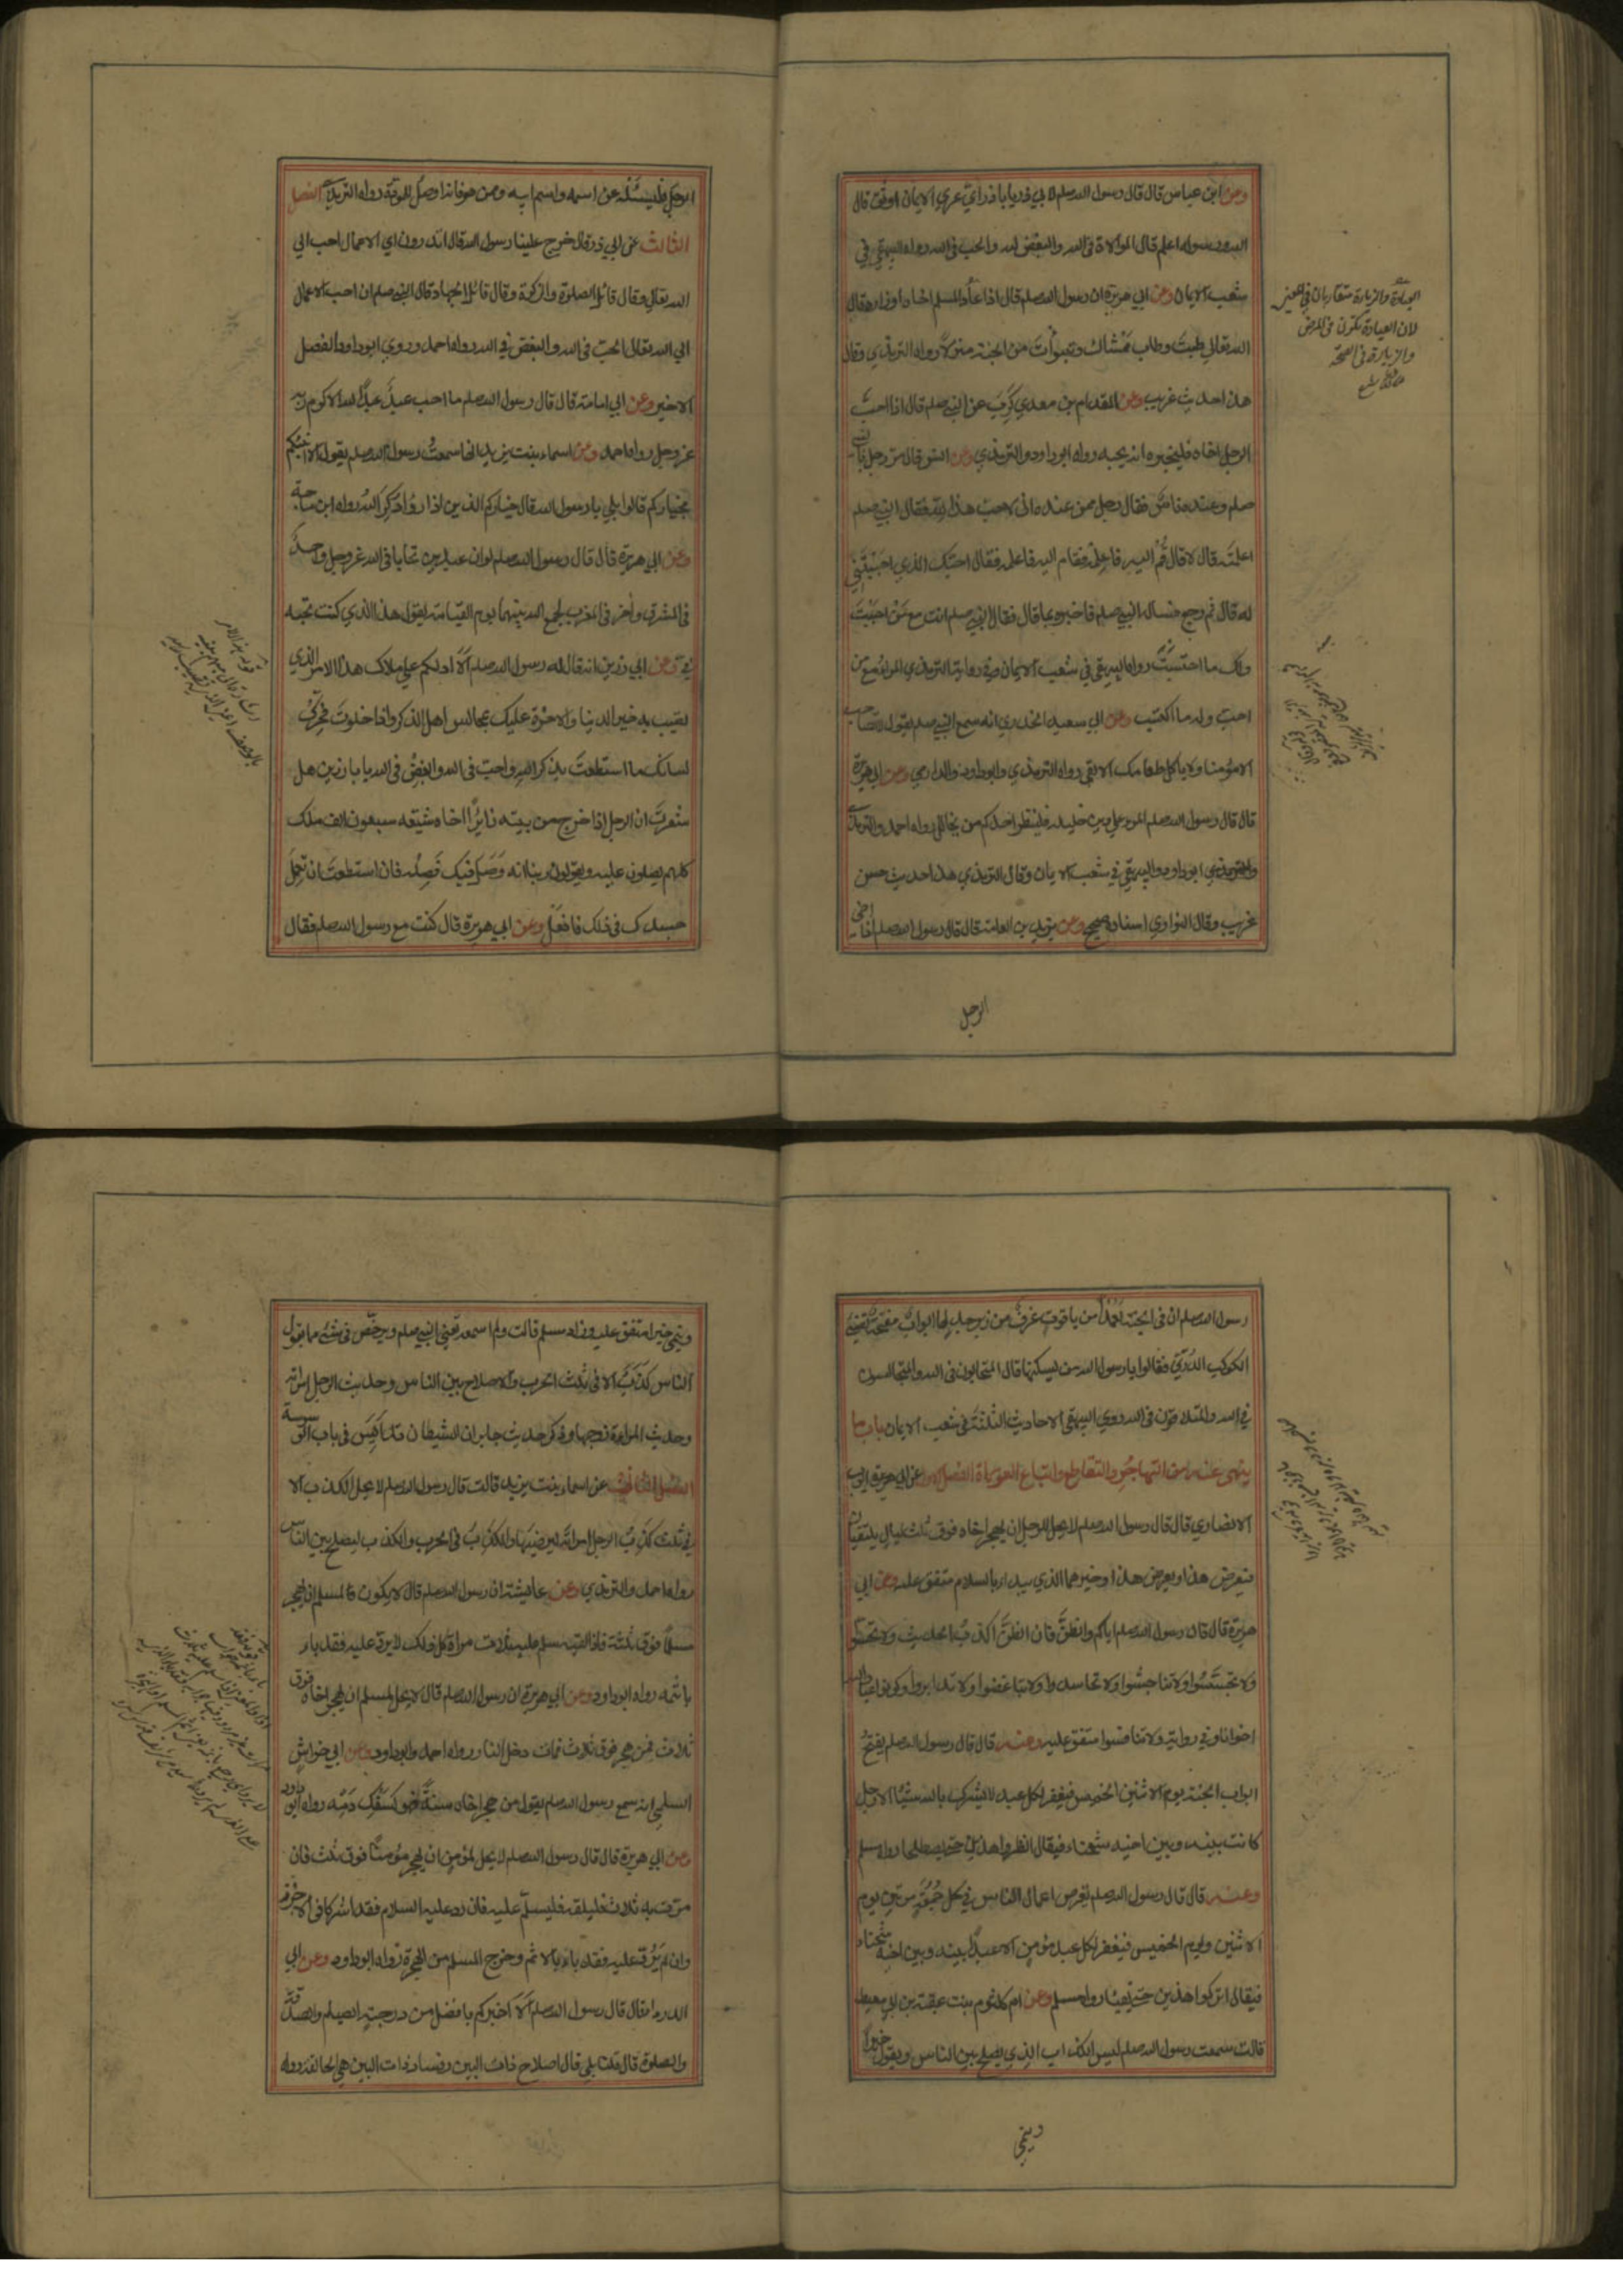 وعن ابن عباس قال قال رسول الله صلعم لابي ذر يا با ذر اي عري الايمان اوثق قال
الله ورسوله اعلم قال الموالاة في الله والبغض لله والحب في الله رواه البيهقي في
شعب الايمان وعن ابي هريرة ان رسول الله صلعم قال اذا عاد المسلم اخاه او زاره قال
الله تعالي طبت وطاب ممشاك وتبوأت من الجنة منزلا رواه الترمذي وقال
هذا حديث غريب وعن المقدام بن معدي كرب عن النبي صلعم قال اذا احب
الرجل اخاه فليخبره انه يحبه رواه ابوداود والترمذي وعن انس قال مر رجل بالنبي
صلعم وعنده ناس فقال رجل ممن عنده اني لاحب هذا لله فقال النبي صلعم
اعلمته قال لا قال قم اليه فاعلمه فقام اليه فاعلمه فقال احبك الذي احببتني
له قال ثم رجع فساله النبي صلعم فاخبره بما قال فقال النبي صلعم انت مع من احببت
ولك ما احتسبت رواه البيهقي في شعب الايمان وفي رواية الترمذي المرء مع من
احب وله ما اكتسب وعن ابي سعيد الخدري انه سمع النبي صلعم يقول لا تصاحب
الا مؤمنا ولا ياكل طعامك الا تقي رواه الترمذي وابوداود والدارمي وعن ابي هريرة
قال قال رسول الله صلعم المرء علي دين خليله فلينظر احدكم من يخالل رواه احمد والترمذي
وابوداود والبيهقي في شعب الايمان وقال الترمذي هذا حديث حسن
غريب وقال النواوي اسناده صحيح وعن يزيد بن نعامة قال قال رسول الله صلعم اذا اخى
الرجل
العيادة والزيارة متقاربان في المعني
لان العيادة تكون في المرض
والزيارة في الصحة
الرجل الرجل فليسئله عن اسمه واسم ابيه وممن هو فانه اوصل للمودة رواه الترمذي الفصل
الثالث عن ابي ذر قال خرج علينا رسول الله قال اتدرون اي الاعمال احب الي
الله تعالي وقال قائل الصلوة والزكوة وقال قائل الجهاد قال النبي صلعم ان احب الاعمال
الي الله تعالي الحب في الله والبغض في الله رواه احمد وروي ابوداود الفصل
الاخير وعن ابي امامة قال قال رسول الله صلعم ما احب عبد عبدا لله الا اكرم ربه
عز وجل رواه احمد وعن اسماء بنت يزيد انها سمعت رسول الله صلعم يقول الا انبئكم
بخياركم قالوا بلي يا رسول الله قال خياركم الذين اذا رؤا ذكر الله رواه ابن ماجة
وعن ابي هريرة قال قال رسول الله صلعم لو ان عبدين تحابا في الله عز وجل واحد
في المشرق واخر في المغرب لجمع الله بينهما يوم القيامة يقول هذا الذي كنت تحبه
في وعن ابي رزين انه قال له رسول الله صلعم الا ادلكم علي ملاك هذا الامر الذي
تصيب به خير الدنيا والاخرة عليك بمجالس اهل الذكر واذا خلوت فحرك
لسانك ما استطعت بذكر الله واحب في الله وابغض في الله يا با رزين هل
شعرت ان الرجل اذا خرج من بيته زائرا اخاه شيعه سبعون الف ملك
كلهم يصلون عليه ويقولون ربنا انه وصل فيك فصله فان استطعت ان تعمل
جسدك في ذلك فافعل وعن ابي هريرة قال كنت مع رسول الله صلعم فقال
رسول الله صلعم ان في الجنة لعمدا من ياقوت غرف من زبرجد لها ابواب مفتحة تضيء
الكوكب الدري فقالوا يا رسول الله من يسكنها قال المتحابون في الله والمتجالسون
في الله والمتلاقون في الله روي البيهقي الاحاديث الثلثة في شعب الايمان باب ما
ينهى عنه من التهاجر والتقاطع واتباع العورات الفصل الاول عن ابي ايوب
الانصاري قال قال رسول الله صلعم لا يحل للرجل ان يهجر اخاه فوق ثلث ليال يلتقيان
فيعرض هذا ويعرض هذا وخيرهما الذي يبدا بالسلام متفق عليه وعن ابي
هريرة قال قال رسول الله صلعم اياكم والظن فان الظن اكذب الحديث ولا تحسسوا
ولا تجسسوا ولا تناجشوا ولا تحاسدوا ولا تباغضوا ولا تدابروا وكونوا عباد الله
اخوانا وفي رواية ولا تنافسوا متفق عليه وعنه قال قال رسول الله صلعم يفتح
ابواب الجنة يوم الاثنين الخميس فيغفر لكل عبد لا يشرك بالله شيئا الا رجل
كانت بينه وبين اخيه شحناء فيقال انظروا هذين حتى يصطلحا رواه مسلم
وعنه قال قال رسول الله صلعم تعرض اعمال الناس في كل جمعة مرتين يوم
الاثنين ويوم الخميس فيغفر لكل عبد مؤمن الا عبدا بينه وبين اخيه شحناء
فيقال اتركوا هذين حتى يفيئا رواه مسلم وعن ام كلثوم بنت عقبة بن ابي معيط
قالت سمعت رسول الله صلعم ليس الكذاب الذي يصلح بين الناس ويقول خيرا
وينمي
وينمي خيرا متفق عليه وزاد مسلم قالت ولم اسمعه تعني النبي صلعم يرخص في شئ مما يقول
الناس كذب الا في ثلث الحرب والاصلاح بين الناس وحديث الرجل امراته
وحديث المراة زوجها وذكر حديث جابر ان الشيطان قد ايس في باب الوسوسة
الفصل الثاني عن اسماء بنت يزيد قالت قال رسول الله صلعم لا يحل الكذب الا
في ثلث كذب الرجل امراته ليرضيها والكذب في الحرب والكذب ليصلح بين الناس
رواه احمد والترمذي وعن عايشة ان رسول الله صلعم قال لا يكون لمسلم ان يهجر
مسلما فوق ثلثة فاذا لقيه سلم عليه ثلاث مرات كل ذلك لا يرد عليه فقد باء
باثمه رواه ابوداود وعن ابي هريرة ان رسول الله صلعم قال لا يحل لمسلم ان يهجر اخاه فوق
ثلاث فمن هجر فوق ثلاث فمات دخل النار رواه احمد وابوداود وعن ابي خراش
السلمي انه سمع رسول الله صلعم يقول من هجر اخاه سنة فهو كسفك دمه رواه ابوداود
وعن ابي هريرة قال قال رسول الله صلعم لا يحل لمؤمن ان يهجر مؤمنا فوق ثلث فان
مرت به ثلاث فليلقه فليسلم عليه فان رد عليه السلام فقد اشتركا في الاجر
وان لم يرد عليه فقد باء بالاثم وخرج المسلم من الهجرة رواه ابوداود وعن ابي
الدرداء قال قال رسول الله صلعم الا اخبركم بافضل من درجة الصيام والصدقة
والصلوة قال قلنا بلي قال اصلاح ذات البين وفساد ذات البين هي الحالقة رواه